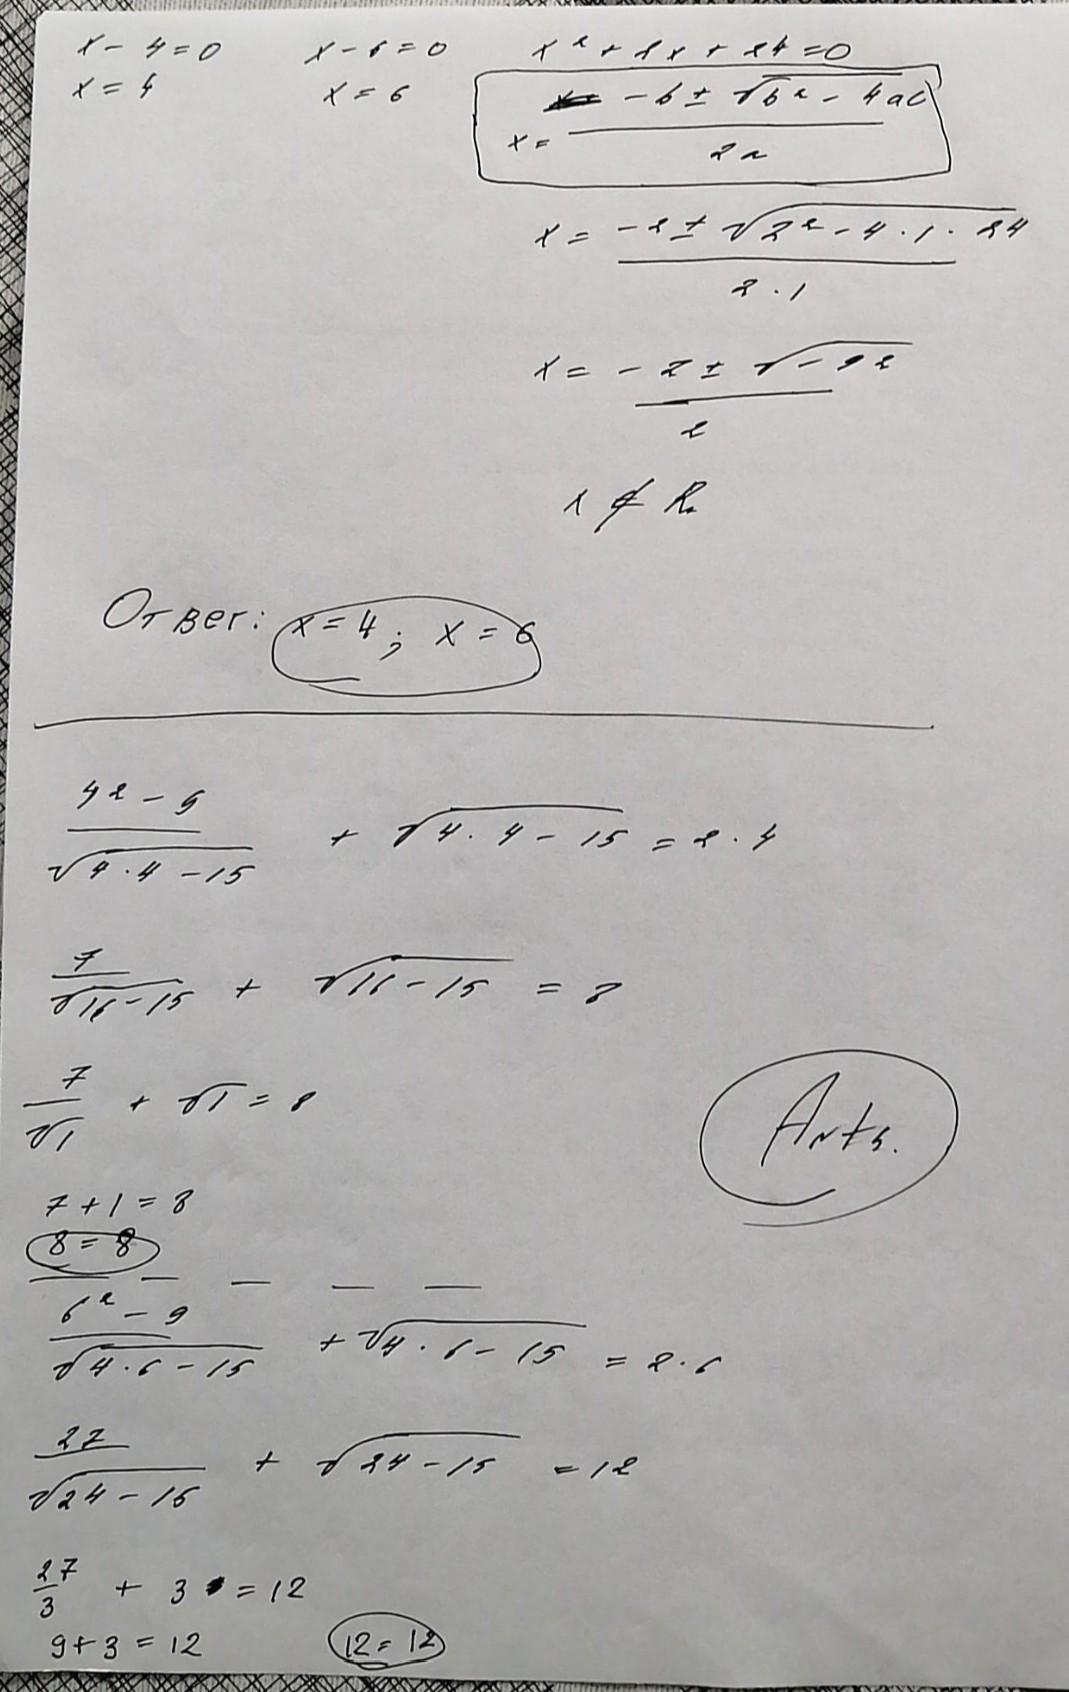 x - 4 = 0    x - 6 = 0    x² + 2x + 24 = 0
x = 4    x = 6
x = (-b ± √(b² - 4ac)) / 2a
x = (-2 ± √(2² - 4 · 1 · 24)) / (2 · 1)
x = (-2 ± √(-92)) / 2
x ∉ R
Ответ: x = 4 ; x = 6
(4² - 9) / √(4 · 4 - 15) + √(4 · 4 - 15) = 2 · 4
7 / √(16 - 15) + √(16 - 15) = 8
7 / √1 + √1 = 8
7 + 1 = 8
8 = 8
(6² - 9) / √(4 · 6 - 15) + √(4 · 6 - 15) = 2 · 6
27 / √(24 - 15) + √(24 - 15) = 12
27 / 3 + 3 = 12
9 + 3 = 12    12 = 12